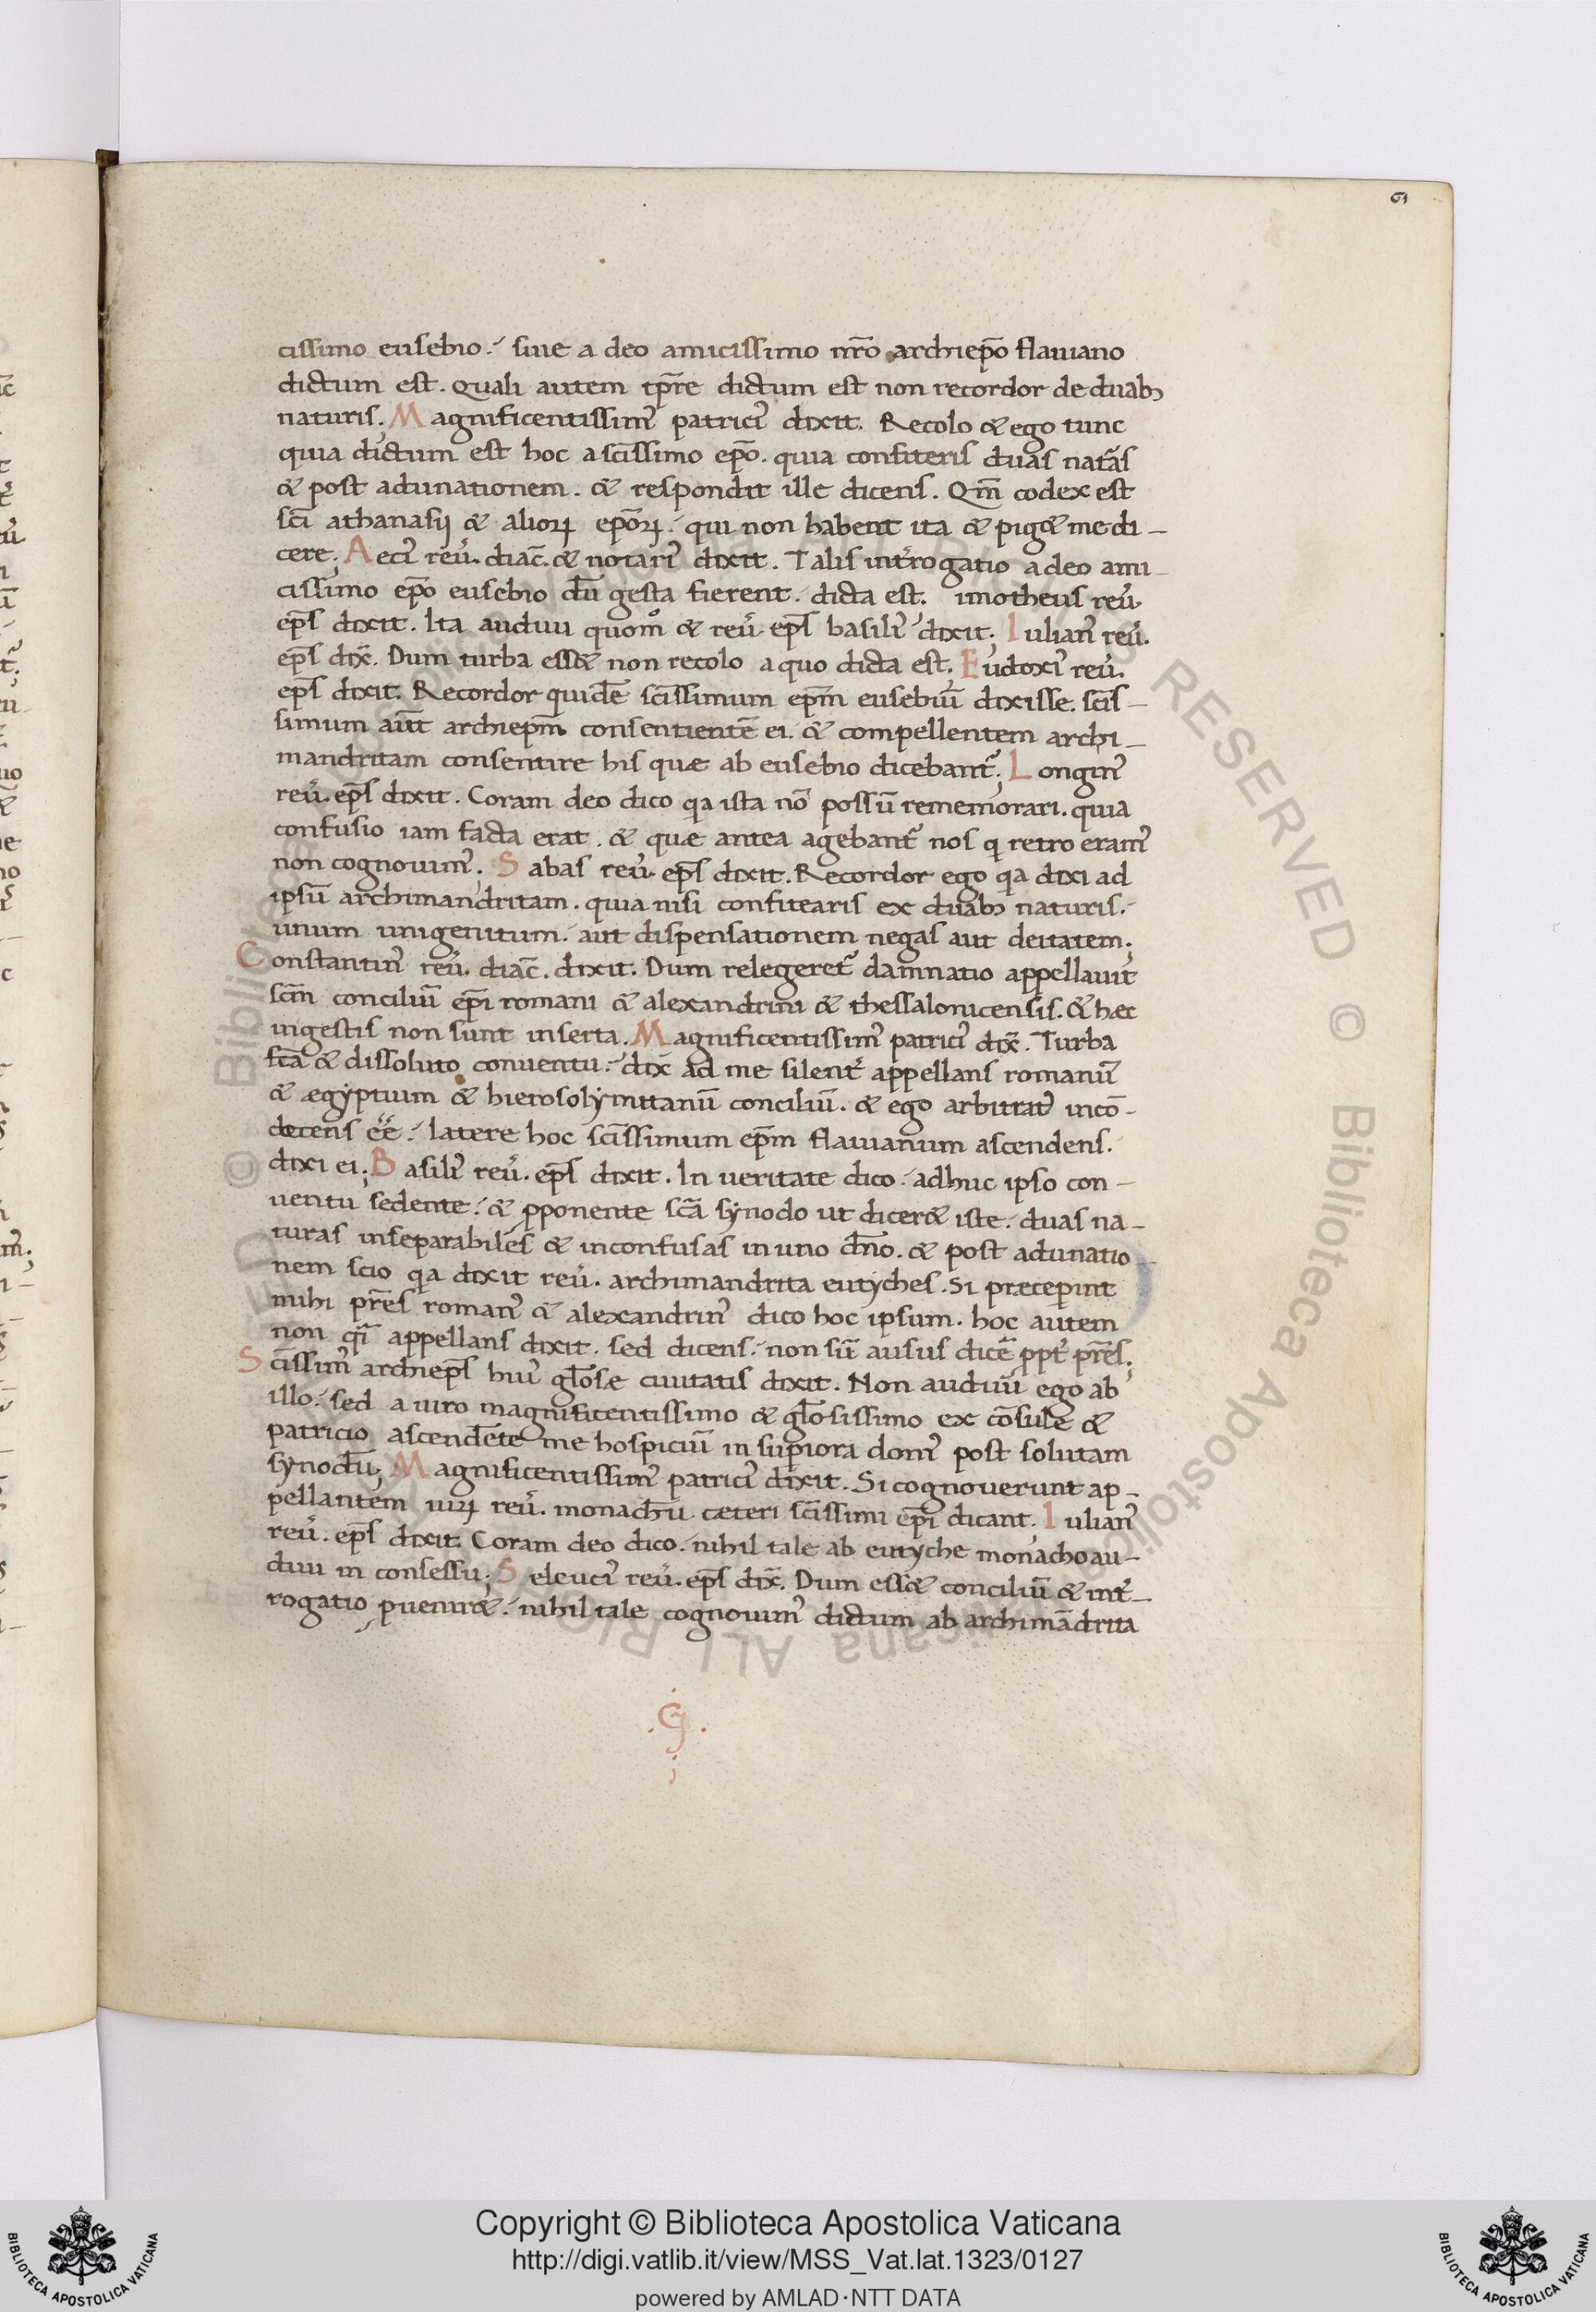 61
cissimo eusebio. siue a deo amicissimo nr̄o archiep̄o flauiano
dictum est. Quali autem tp̄re dictum est non recordor de duabꝫ
naturis. Magnificentissimꝰ patriciꝰ dixit. Recolo & ego tunc
quia dictum est hoc a sc̄issimo ep̄o. quia confiteris duas nat̄as
& post adunationem. & respondit ille dicens. Qm̄ codex est
sc̄i athanasij & alioꝝ ep̄oꝝ. qui non habent ita & pig& me di-
cere. Aeciꝰ reu̅. diac̄. & notariꝰ dixit. Talis int̄rogatio a deo ami-
cissimo ep̄o eusebio dū gesta fierent. dicta est. imotheus reu̅
ep̄s dixit. Ita audiui quom̊ & reu̅ ep̄s basiliꝰ dixit. Iulianꝰ reu̅.
ep̄s dix̄. Dum turba ess& non recolo a quo dicta est. Eudoxiꝰ reu̅.
ep̄s dixit. Recordor quidē sc̄issimum ep̄m eusebiū dixisse. sc̄is-
simum aūt archiep̄m consentientē ei. & compellentem archi-
mandritam consentire his quæ ab eusebio dicebant᷑. Longinꝰ
reu̅. ep̄s dixit. Coram deo dico qa ista nō possū rememorari. quia
confusio iam facta erat. & quæ antea agebant᷑ nos q retro eramꝰ
non cognouimꝰ. Sabas reu̅ ep̄s dixit. Recordor ego qa dixi ad
ipsū archimandritam. quia nisi confitearis ex duabꝫ naturis.
unum unigenitum. aut dispensationem negas aut deitatem.
Constantinꝰ reu̅. diac̄. dixit. Dum relegeret᷑ damnatio appellauit
sc̄m conciliū ep̄i romani & alexandrini & thessalonicensis. & hæc
in gestis non sunt inserta. Magnificentissimꝰ patriciꝰ dix̄. Turba
fc̄a & dissoluto conuentu. dix̄ ad me silent̄ appellans romanū
& ægyptium & hierosolymitanū conciliū. & ego arbitratꝰ incō-
decens ēē. latere hoc sc̄issimum ep̄m flauianum ascendens.
dixi ei. Basiliꝰ reu̅. ep̄s dixit. In ueritate dico. adhuc ipso con-
uentu sedente. & ꝓponente sc̄a synodo ut dicer& iste. duas na-
turas inseparabiles & inconfusas in uno dn̄o. & post adunatio-
nem scio qa dixit reu̅. archimandrita eutyches. Si præceperint
mihi pr̄es romanꝰ & alexandrinꝰ dico hoc ipsum. hoc autem
non q̄i appellans dixit. sed dicens. non sū ausus dicē ꝓpt̄ pr̄es.
Sc̄issimꝰ archiep̄s huiꝰ gl̄osæ ciuitatis dixit. Non audiui ego ab
illo. sed a uiro magnificentissimo & gl̄osissimo ex cōsule &
patricio ascendēte me hospiciū in supiora domꝰ post solutam
synodū. Magnificentissimꝰ patriciꝰ dixit. Si cognouerunt ap-
pellantem uiꝝ reu̅. monachū cæteri sc̄issimi ep̄i dicant. Iulianꝰ
reu̅. ep̄s dixit. Coram deo dico. nihil tale ab eutyche monacho au-
diui in consessu. Seleuciꝰ reu̅. ep̄s dix̄. Dum ess& conciliū & int̄-
rogatio ꝓuenir&. nihil tale cognouimꝰ dictum ab archimādrita
.G.
Copyright © Biblioteca Apostolica Vaticana
http://digi.vatlib.it/view/MSS_Vat.lat.1323/0127
powered by AMLAD·NTT DATA
BIBLIOTECA APOSTOLICA VATICANA
BIBLIOTECA APOSTOLICA VATICANA